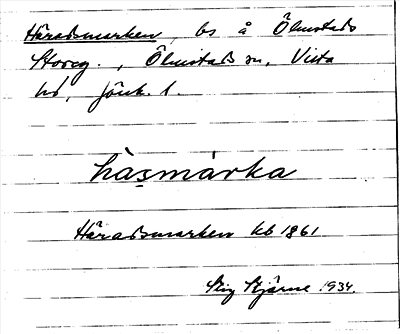 Häradsmarken, bs å Ölmstads
Storeg., Ölmstads sn, Vista
hd, Jönk. l.
hàṣmàrka
Häradsmarken kb 1861.
Stig Stjärne 1934.